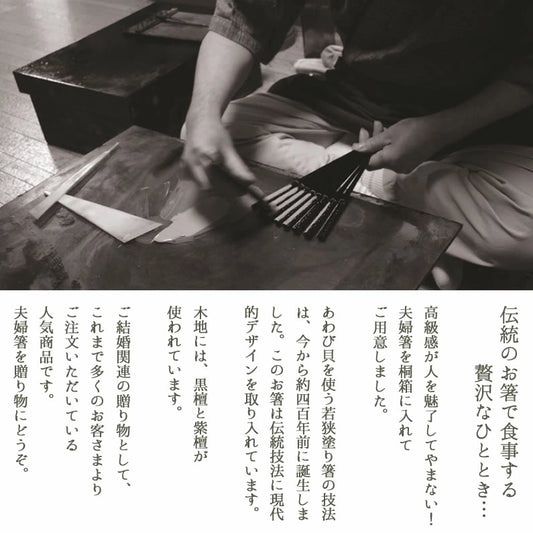 伝統のお箸で食事する
贅沢なひととき…
高級感が人を魅了してやまない！
夫婦箸を桐箱に入れて
ご用意しました。
あわび貝を使う若狭塗り箸の技法
は、今から約四百年前に誕生しま
した。このお箸は伝統技法に現代
的デザインを取り入れています。
木地には、黒檀と紫檀が
使われています。
ご結婚関連の贈り物として、
これまで多くのお客さまより
ご注文いただいている
人気商品です。
夫婦箸を贈り物にどうぞ。